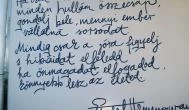 Ha
minden hullám összecsap,
gondolj bele, mennyi ember
vállalná sorsodat.
Mindig csak a jóra figyelj
s hibáidat elfeledd
ha önmagadat elfogadod,
könnyebb lesz az életed.